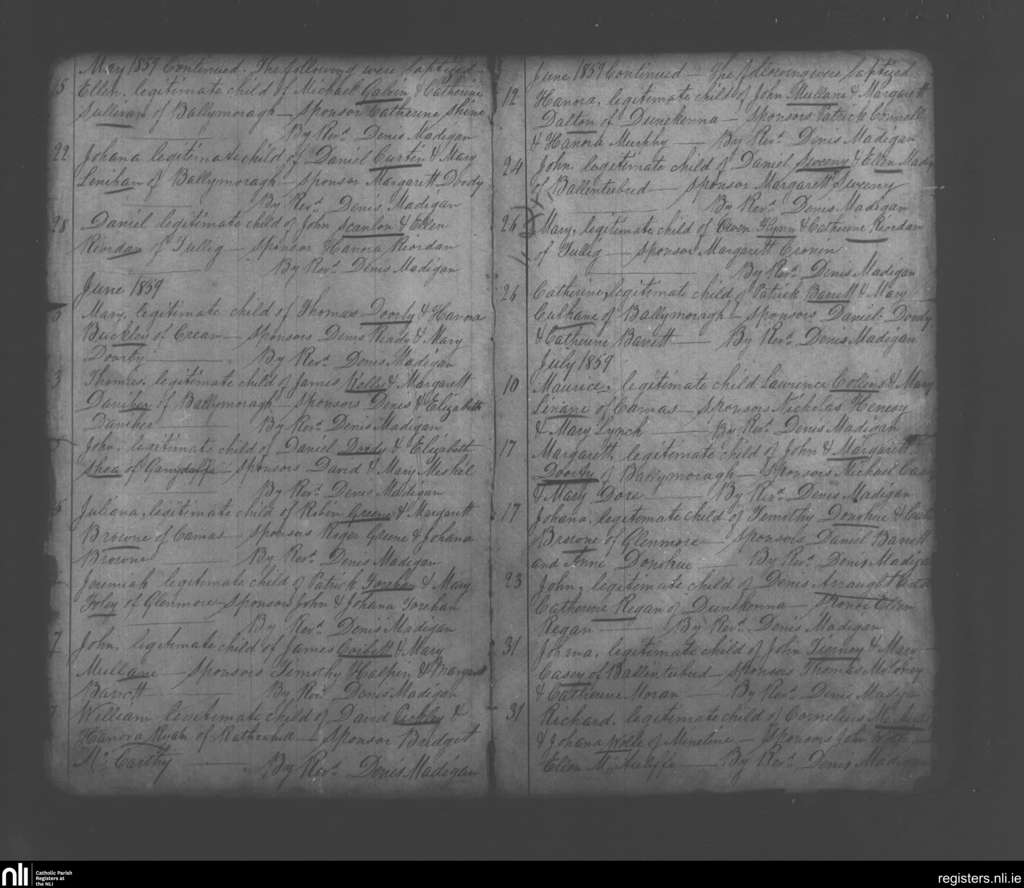 May 1859 Continued. The following were baptized
15 Ellen, legitimate child of Michael Galvin & Catherine
Sullivan of Ballymoragh — Sponsor Catherine Shine
By Revd. Denis Madigan
22 Johana legitimate child of Daniel Curtin & Mary
Lenihan of Ballymoragh — Sponsor Margarett Doody
By Revd. Denis Madigan
28 Daniel legitimate child of John Scanlon & Ellen
Reordan of Tullig — Sponsor Hanora Reordan
By Revd. Denis Madigan
June 1859
Mary, legitimate child of Thomas Doody & Hanora
Buckley of Cream — Sponsors Denis Ready & Mary
Doody — By Revd. Denis Madigan
3 Thomas, legitimate child of James Kelly & Margarett
of Ballymoragh — Sponsors Denis & Elizabeth
By Revd. Denis Madigan
5 John, legitimate child of Daniel Doody & Elizabeth
Shea of — Sponsors David & Mary Heskel
By Revd. Denis Madigan
5 Juliana, legitimate child of Robert Greene & Margarett
Browne of Camas — Sponsors Roger Greene & Johana
Browne — By Revd. Denis Madigan
Jeremiah legitimate child of Patrick & Mary
Foley of Glenmore — Sponsors John & Johana
By Revd. Denis Madigan
7 John, legitimate child of James Corbett & Mary
Mullane — Sponsors Timothy Halpin & Margarett
Barrett — By Revd. Denis Madigan
7 William legitimate child of David &
Hanora of — Sponsor Bridget
Mc Carthy — By Revd. Denis Madigan
June 1859 Continued — The following were baptized
12 Hanora, legitimate child of John Mullane & Margarett
Dalton of Dunekenna — Sponsors Patrick
& Hanora Murphy — By Revd. Denis Madigan
24 John, legitimate child of Daniel Sweeny & Ellen
of Ballentubrid — Sponsor Margarett Sweeny
By Revd. Denis Madigan
26 Mary, legitimate child of Owen Flynn & Catherine Reordan
of Tullig — Sponsor Margarett Cronin
By Revd. Denis Madigan
26 Catherine, legitimate child of Patrick Barrett & Mary
Culhane of Ballymoragh — Sponsors Daniel Doody
& Catherine Barrett — By Revd. Denis Madigan
July 1859
10 Maurice, legitimate child Lawrence Collins & Mary
Linane of Camas — Sponsors Nicholas Henesy
& Mary Lynch — By Revd. Denis Madigan
17 Margarett, legitimate child of John & Margarett
Doody of Ballymoragh — Sponsors Michael Casey
& Mary Dore — By Revd. Denis Madigan
17 Johana, legitimate child of Timothy Donohue &
Browne of Glenmore — Sponsors Daniel Barrett
and Anne Donohue — By Revd. Denis Madigan
23 John, legitimate child of Denis Arraught
Catherine Regan of Dunekenna — Sponsor Ellen
Regan — By Revd. Denis Madigan
31 legitimate child of John & Mary
Casey of Ballentubrid — Sponsors Thomas Moloney
& Catherine Horan — By Revd. Denis Madigan
31 Richard, legitimate child of Cornelius
& Johana Wolfe of Meneline — Sponsors John Wolfe
Ellen Mc Auliffe — By Revd. Denis Madigan
nli
Catholic Parish
Registers at
the NLI
registers.nli.ie